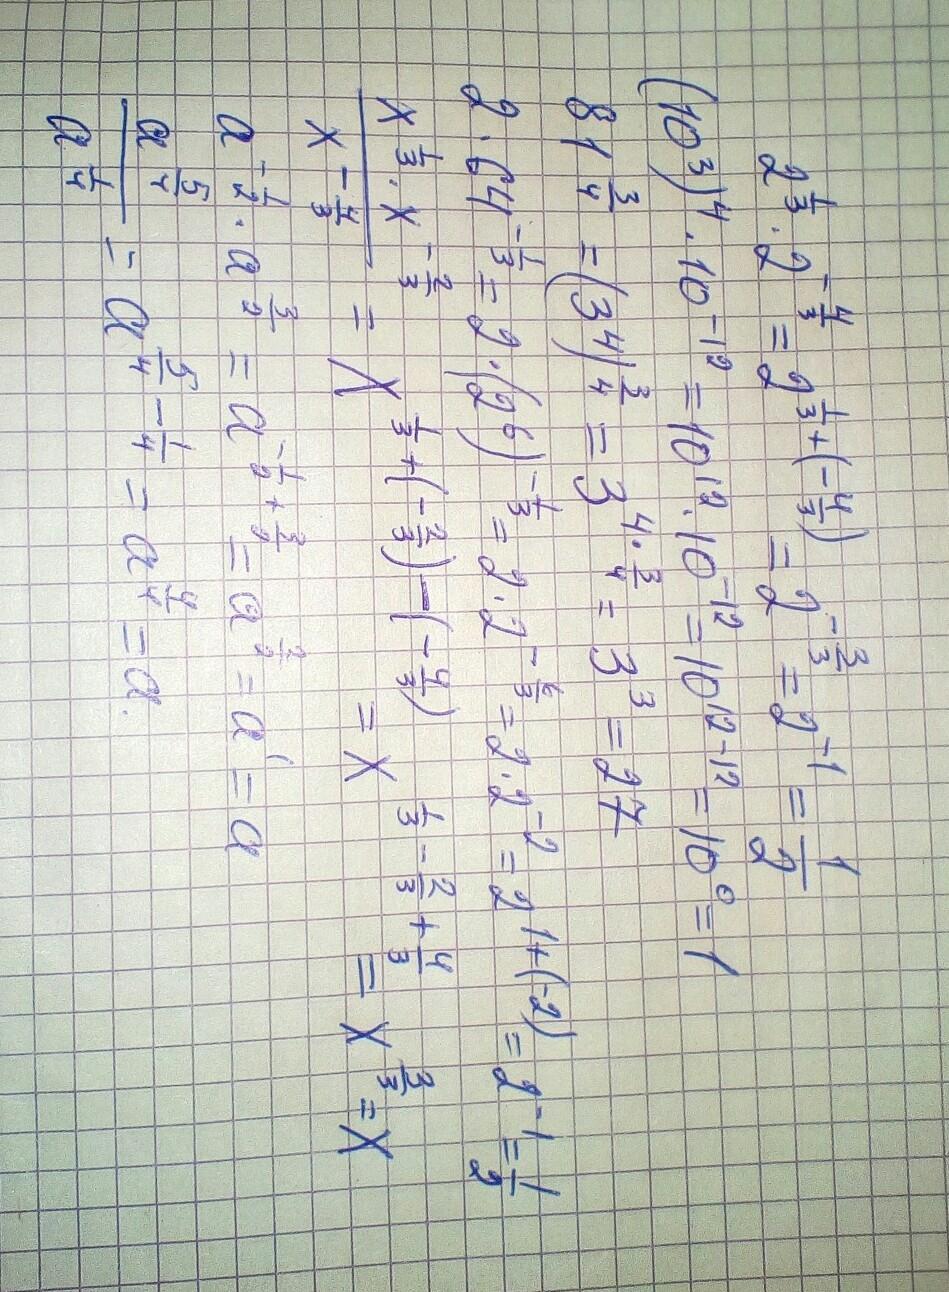 2^{1/3} · 2^{-4/3} = 2^{1/3+(-4/3)} = 2^{-3/3} = 2^{-1} = 1/2
(10^3)^4 · 10^{-12} = 10^{12} · 10^{-12} = 10^{12-12} = 10^0 = 1
81^{3/4} = (3^4)^{3/4} = 3^{4·3/4} = 3^3 = 27
2 · 64^{-1/3} = 2 · (2^6)^{-1/3} = 2 · 2^{-6/3} = 2 · 2^{-2} = 2^{1+(-2)} = 2^{-1} = 1/2
(x^{1/3} · x^{-2/3}) / x^{-4/3} = x^{1/3+(-2/3)-(-4/3)} = x^{1/3-2/3+4/3} = x^{3/3} = x
a^{-1/2} · a^{3/2} = a^{-1/2+3/2} = a^{2/2} = a^1 = a
a^{5/4} / a^{1/4} = a^{5/4-1/4} = a^{4/4} = a.